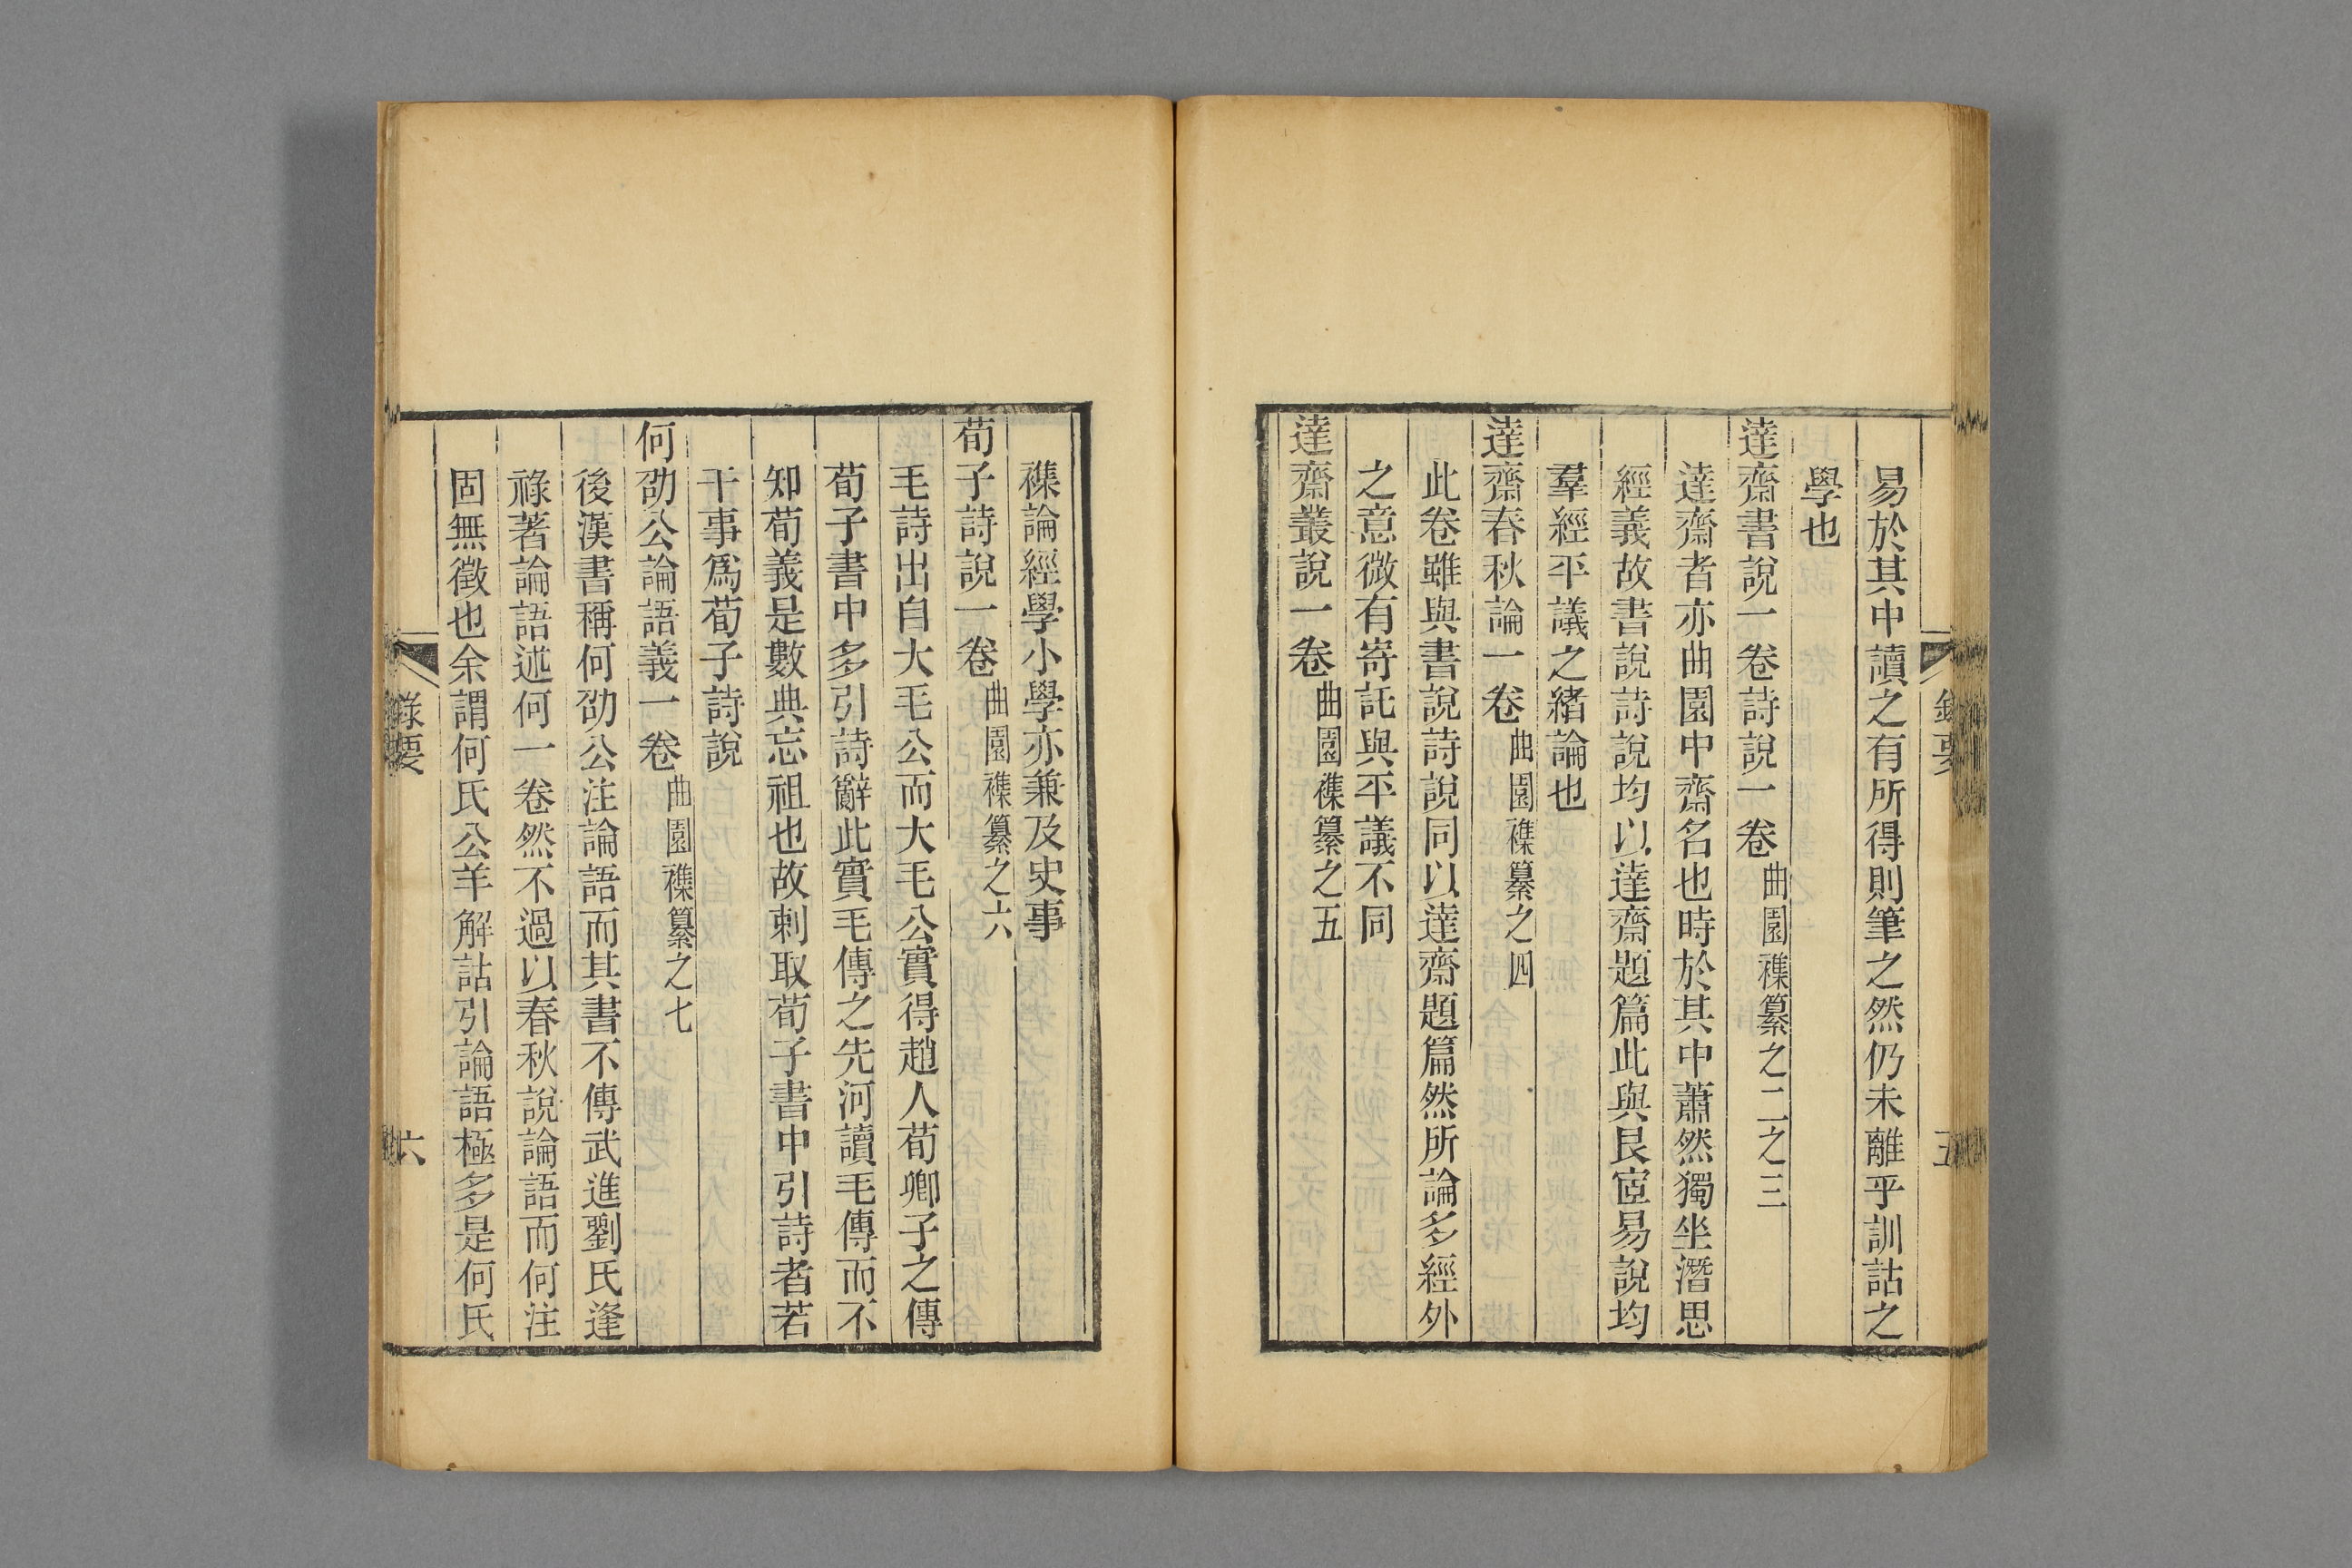 易於其中讀之有所得則筆之然仍未離乎訓詁之
學也
達齋書說一卷詩說一卷曲園襍纂之二之三
達齋者亦曲園中齋名也時於其中蕭然獨坐潛思
經義故書說詩說均以達齋題篇此與艮宧易說均
羣經平議之緒論也
達齋春秋論一卷曲園襍纂之四
此卷雖與書說詩說同以達齋題篇然所論多經外
之意微有寄託與平議不同
達齋叢說一卷曲園襍纂之五
襍論經學小學亦兼及史事
荀子詩說一卷曲園襍纂之六
毛詩出自大毛公而大毛公實得趙人荀卿子之傳
荀子書中多引詩辭此實毛傳之先河讀毛傳而不
知荀義是數典忘祖也故刺取荀子書中引詩者若
干事爲荀子詩說
何劭公論語義一卷曲園襍纂之七
後漢書稱何劭公注論語而其書不傳武進劉氏逢
祿著論語述何一卷然不過以春秋說論語而何注
固無徵也余謂何氏公羊解詁引論語極多是何氏
錄要
六